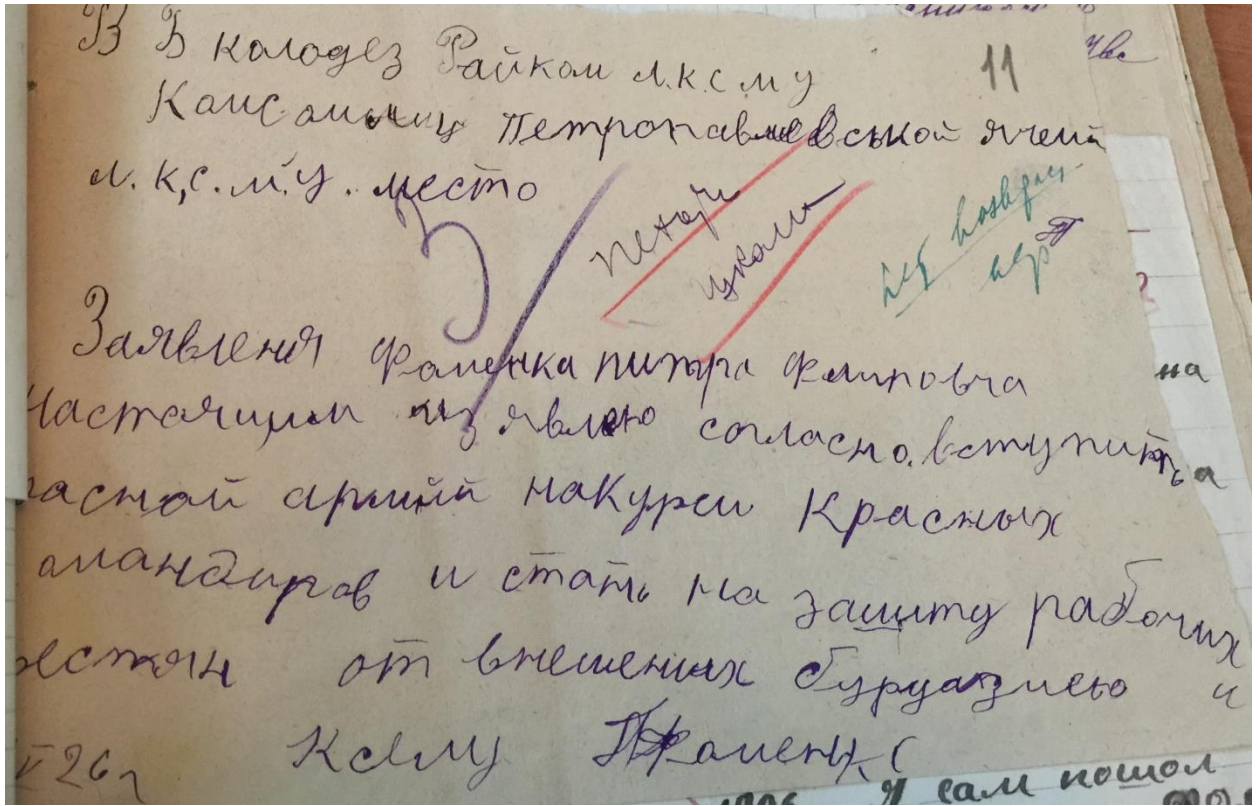 В Б колодез Райком л.к.с.м у
11
Комсомлиц Петропавлевськой ячейи
л.к,с.м.у. место
пехот
школа
Заявления Фоменка питра Филиповча
Настоящим изявлею согласно. вступить
расной армий накурси Красных
омандиров и стать на защиту рабочих
рестян от внешених буруазиею и
V 26 г КСЛМУ ПФоменк
на
я сам пошол